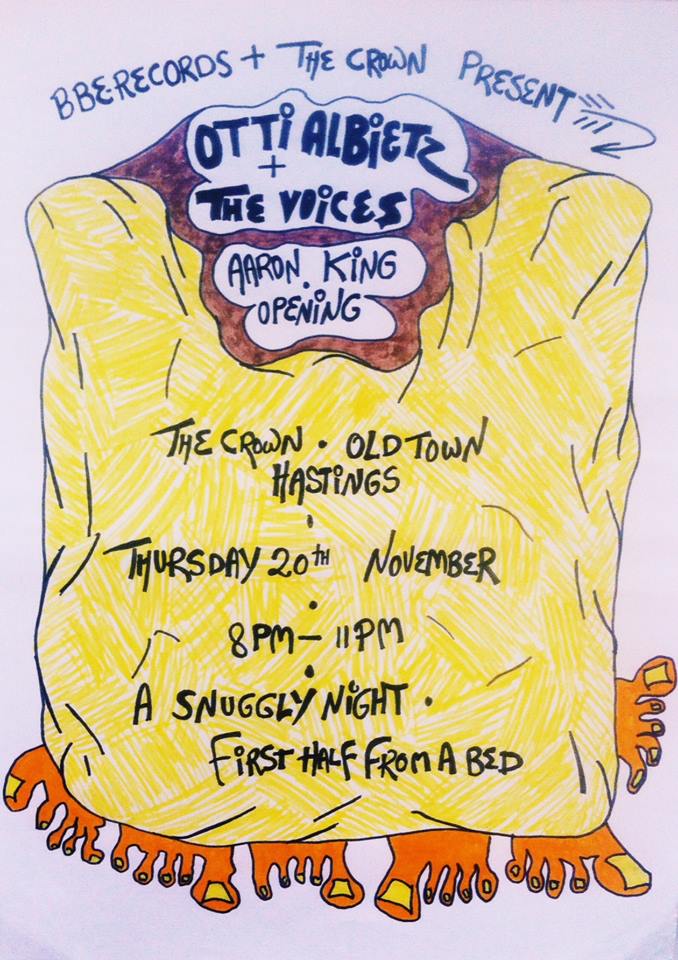 BBE.RECORDS + THE CROWN PRESENT
OTTi ALBiETZ
+
THE VOiCES
AARON KiNG
OPENiNG
THE CROWN • OLD TOWN
HASTiNGS
THURSDAY 20TH NOVEMBER
8PM – 11PM
A SNUGGLY NiGHT •
FiRST HALF FROM A BED